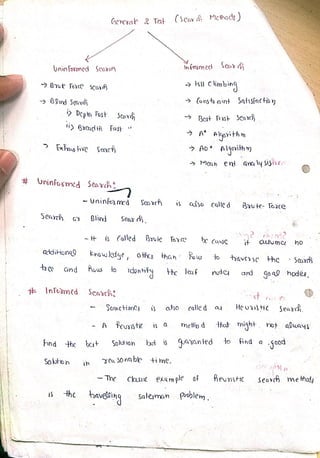 Generat & Test (Search Methods)
Uninformed Search
Informed Search
→ Brute Force Search
→ Hill Climbing
→ Blind Search
→ Constraint Satisfaction
i) Depth First Search
→ Best First Search
ii) Breadth First "
→ A* Algorithm
→ Exhaustive Search
→ AO* Algorithm
→ Mean end analysis
# Uninformed Search:
- Uninformed Search is also called Brute-Force
Search or Blind Search.
- It is called Brute Force because it assumes no
additional knowledge, other than how to traverse the Search
tree and how to identify the leaf nodes and goal nodes.
# Informed Search:
- Sometimes is also called as Heuristic Search
- A Heuristic is a method that might not always
find the best Solution but is guaranted to find a good
Solution in reasonable time.
- The Classic example of Heuristic search methods
is the travelling salesman problem.